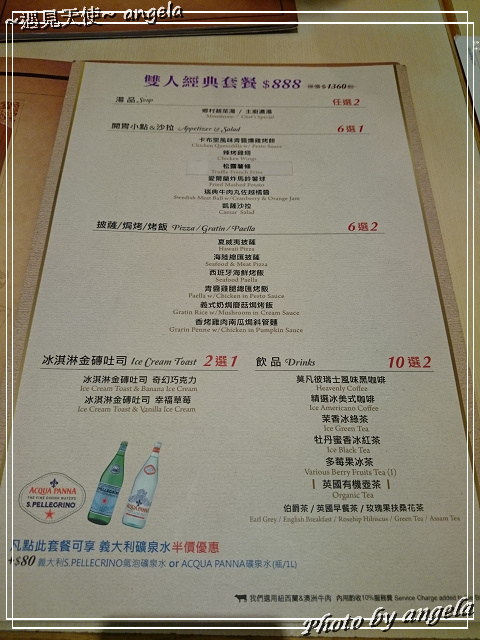 ~遇見天使~ angela
雙人經典套餐 $888 原價$1360
湯品 Soup 任選2
鄉村蔬菜湯 / 主廚濃湯
Minestrone / Chef's Special
開胃小點&沙拉 Appetizer & Salad 6選1
卡布里風味青醬燻雞烤餅
Chicken Quesadilla w/ Pesto Sauce
辣烤雞翅
Chicken Wings
松露薯條
Truffle French Fries
愛爾蘭炸馬鈴薯球
Fried Mashed Potato
瑞典牛肉丸佐越橘醬
Swedish Meat Ball w/Cranberry & Orange Jam
凱薩沙拉
Caesar Salad
披薩/焗烤/烤飯 Pizza / Gratin / Paella 6選2
夏威夷披薩
Hawaii Pizza
海陸總匯披薩
Seafood & Meat Pizza
西班牙海鮮烤飯
Seafood Paella
青醬雞腿總匯烤飯
Paella w/Chicken in Pesto Sauce
義式奶焗蘑菇焗烤飯
Gratin Rice w/Mushroom in Cream Sauce
香烤雞肉南瓜焗斜管麵
Gratin Penne w/Chicken in Pumpkin Sauce
冰淇淋金磚吐司 Ice Cream Toast 2選1
冰淇淋金磚吐司 奇幻巧克力
Ice Cream Toast & Banana Ice Cream
冰淇淋金磚吐司 幸福草莓
Ice Cream Toast & Vanilla Ice Cream
飲品 Drinks 10選2
莫凡彼瑞士風味黑咖啡
Heavenly Coffee
精選冰美式咖啡
Ice Americano Coffee
茉香冰綠茶
Ice Green Tea
牡丹蜜香冰紅茶
Ice Black Tea
多莓果冰茶
Various Berry Fruits Tea (I)
| 英國有機壺茶 |
Organic Tea
伯爵茶 / 英國早餐茶 / 玫瑰果扶桑花茶
Earl Grey / English Breakfast / Rosehip Hibiscus / Green Tea / Assam Tea
ACQUA PANNA
THE FINE DINING WATERS
S.PELLEGRINO
凡點此套餐可享 義大利礦泉水半價優惠
+$80 義大利S.PELLEGRINO氣泡礦泉水 or ACQUA PANNA礦泉水(瓶/1L)
我們選用紐西蘭&澳洲牛肉 內用酌收10%服務費 Service Charge added to
Photo by angela